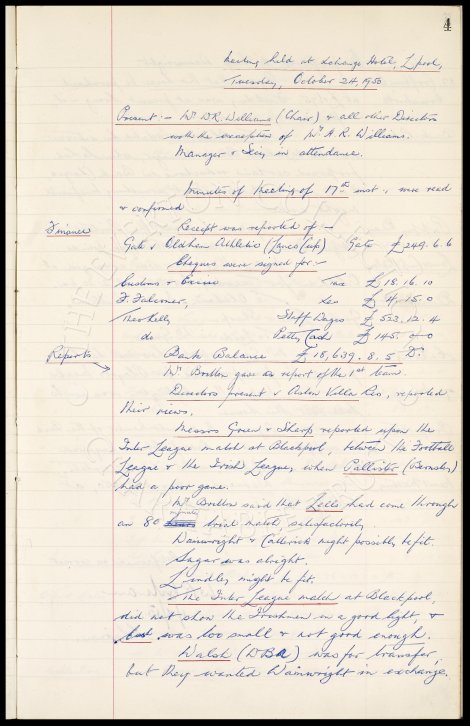 4
Meeting held at Exchange Hotel, L'pool,
Tuesday, October 24, 1950
Present :- Mr W.R. Williams (Chair) & all other Directors
with the exception of Mr A.R. Williams.
Manager & Secy in attendance.
Minutes of Meeting of 17th inst, were read
& confirmed
Finance
Receipt was reported of :-
Gate v Oldham Athletic (Lancs Cup) Gate £249. 6. 6
Cheques were signed for :-
Customs & Excise Tax £18. 16. 10
F. Falconer, £4. 15. 0
Theo Kelly Staff Wages £523. 12. 4
do Petty Cash £145. 0. 0
Bank Balance £18,639. 8. 5 D.
Reports
Mr Britton gave a report of the 1st team.
Directors present v Aston Villa Res, reported
their views.
Messrs Green & Sharp reported upon the
Inter League match at Blackpool, between the Football
League & the Irish League, when Pallister (Barnsley)
had a poor game.
Mr Britton said that Lello had come through
an 80 minutes trial match, satisfactorily.
Wainwright & Catterick might possibly be fit.
Sugar was alright.
Lindley might be fit.
The Inter League match at Blackpool,
did not show the Irishmen in a good light, &
was too small & not good enough.
Walsh (WBA) was for transfer,
but they wanted Wainwright in exchange.